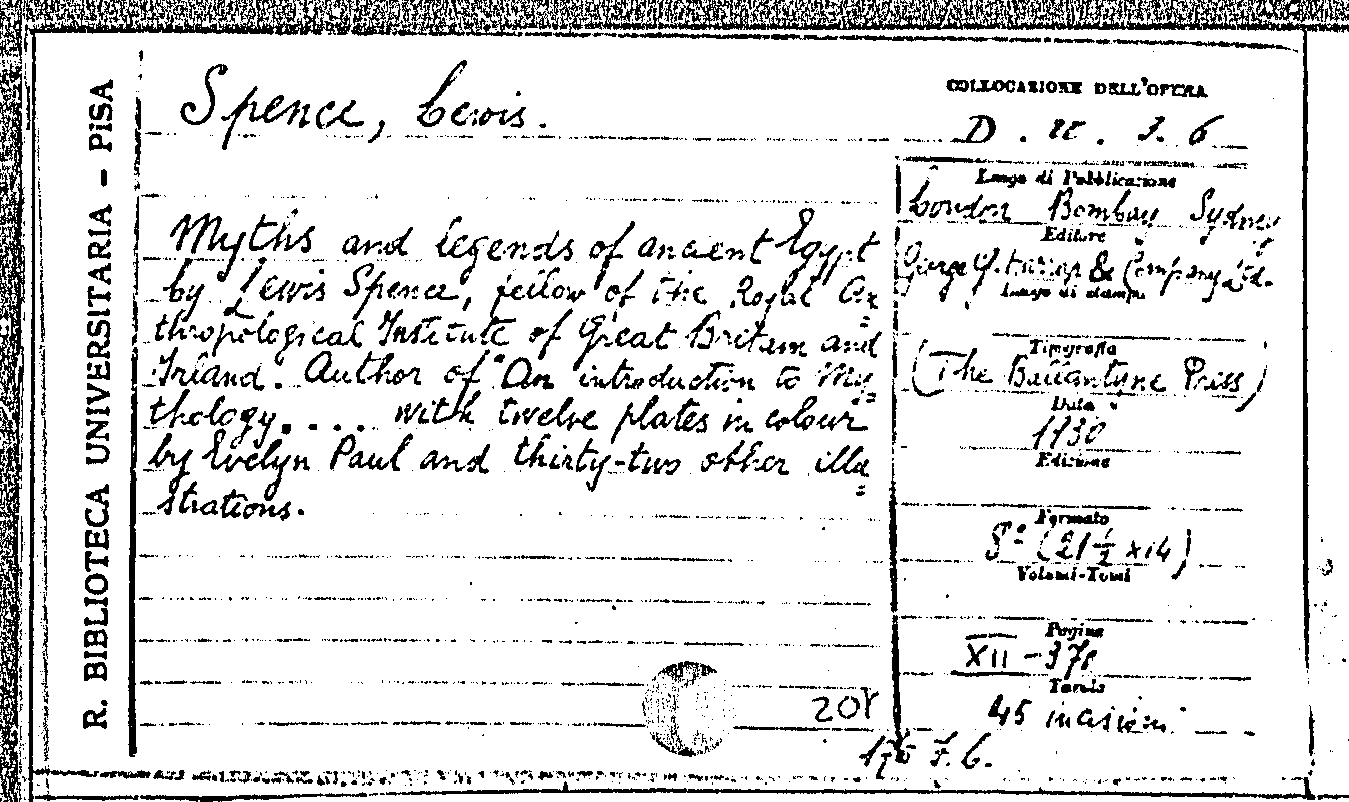 R. BIBLIOTECA UNIVERSITARIA - PISA
Spence, Lewis.
COLLOCAZIONE DELL'OPERA
D. 3. 6
Myths and legends of ancient Egypt
by Lewis Spence, fellow of the Royal An=
thropological Institute of Great Britain and
Irland. Author of "An introduction to My=
thology.... with twelve plates in colour
by Evelyn Paul and thirty-two other illu=
strations.
Luogo di Pubblicazione
London Bombay Sydney
Editore
& Company Ltd.
Luogo di stampa
Tipografia
(The Ballantyne Press)
Data
1930
Edizione
Formato
8º (21 ½ x 14)
Volumi-Tomi
Pagine
XII - 370
Tavole
45 incisioni
208